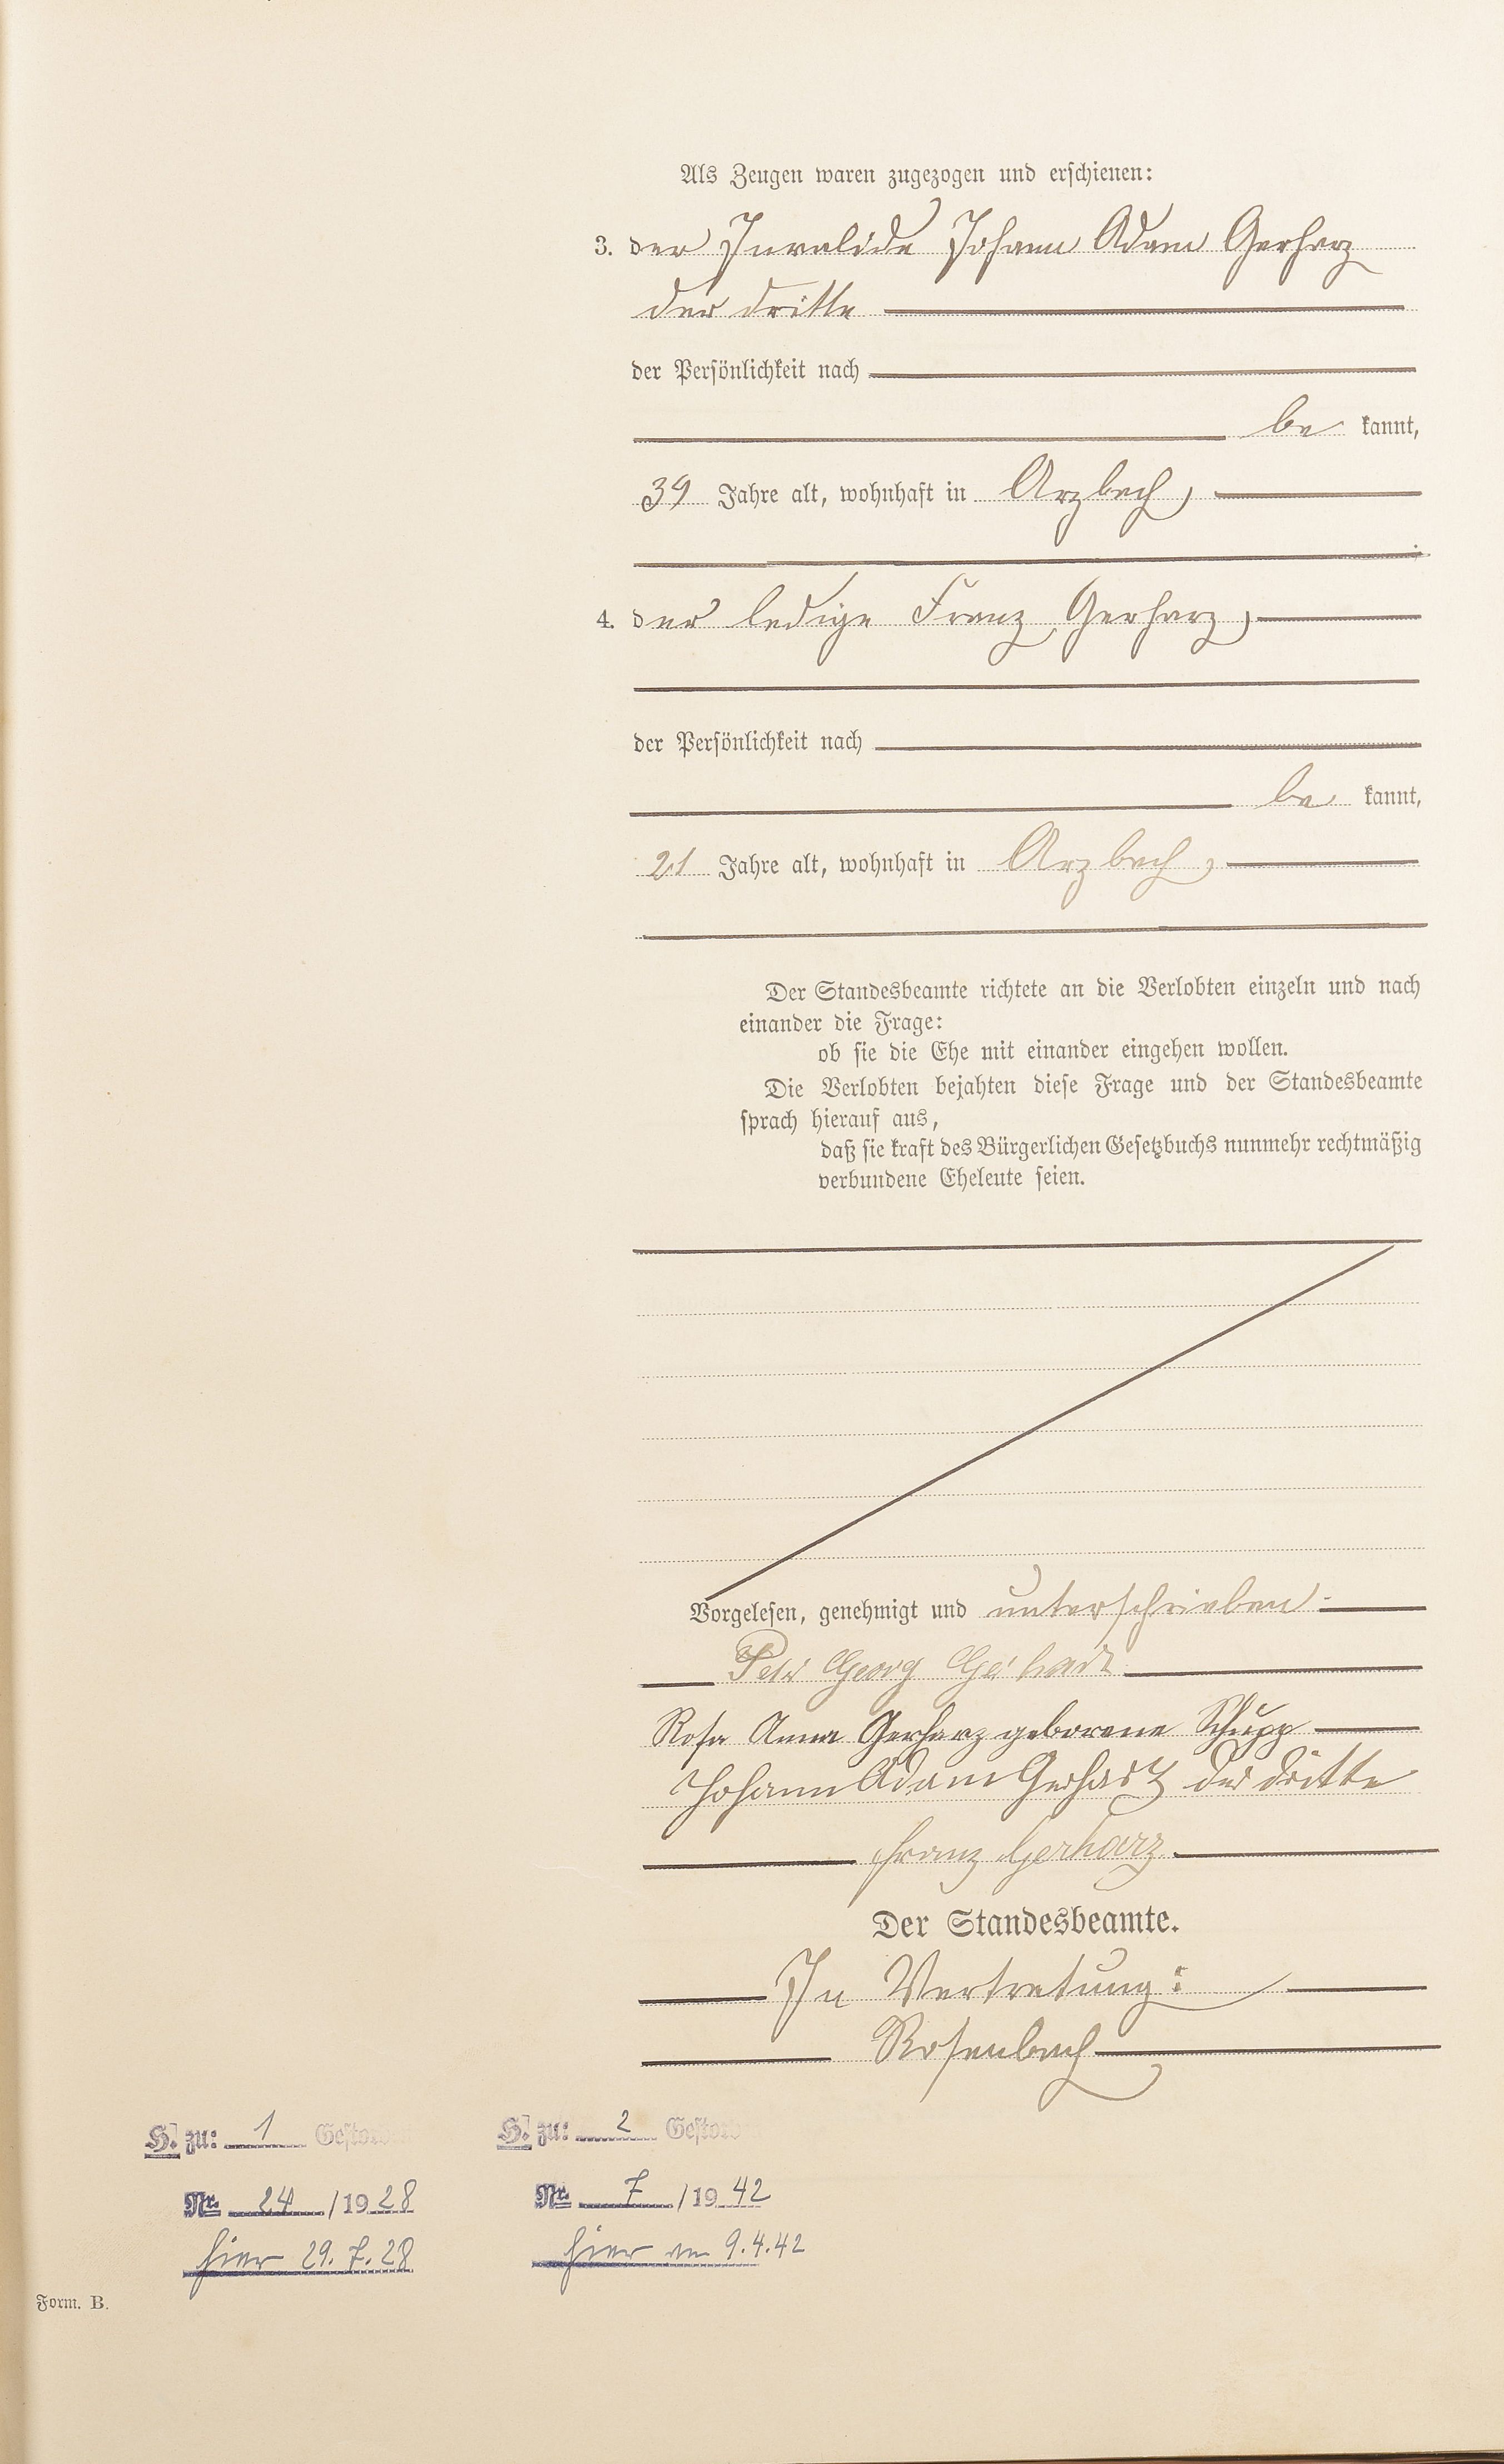 Als Zeugen waren zugezogen und erschienen:
3. der Invalide Johann Adam Gerharz
der dritte
der Persönlichkeit nach
be kannt,
39 Jahre alt, wohnhaft in Arzbach,
4. der ledige Franz Gerharz,
der Persönlichkeit nach
be kannt,
21 Jahre alt, wohnhaft in Arzbach,
Der Standesbeamte richtete an die Verlobten einzeln und nach
einander die Frage:
ob sie die Ehe mit einander eingehen wollen.
Die Verlobten bejahten diese Frage und der Standesbeamte
sprach hierauf aus,
daß sie kraft des Bürgerlichen Gesetzbuchs nunmehr rechtmäßig
verbundene Eheleute seien.
Vorgelesen, genehmigt und unterschrieben.
Georg
Rosa Anna Gerharz geborene Schupp
Johann Adam Gerharz der dritte
Franz Gerharz.
Der Standesbeamte.
In Vertretung:
Rosenbach
H. zu: 1 Gestorben
Nr. 24 / 1928
hier 29.7.28
H. zu: 2 Gestorben
Nr. 7 / 1942
hier am 9.4.42
Form. B.